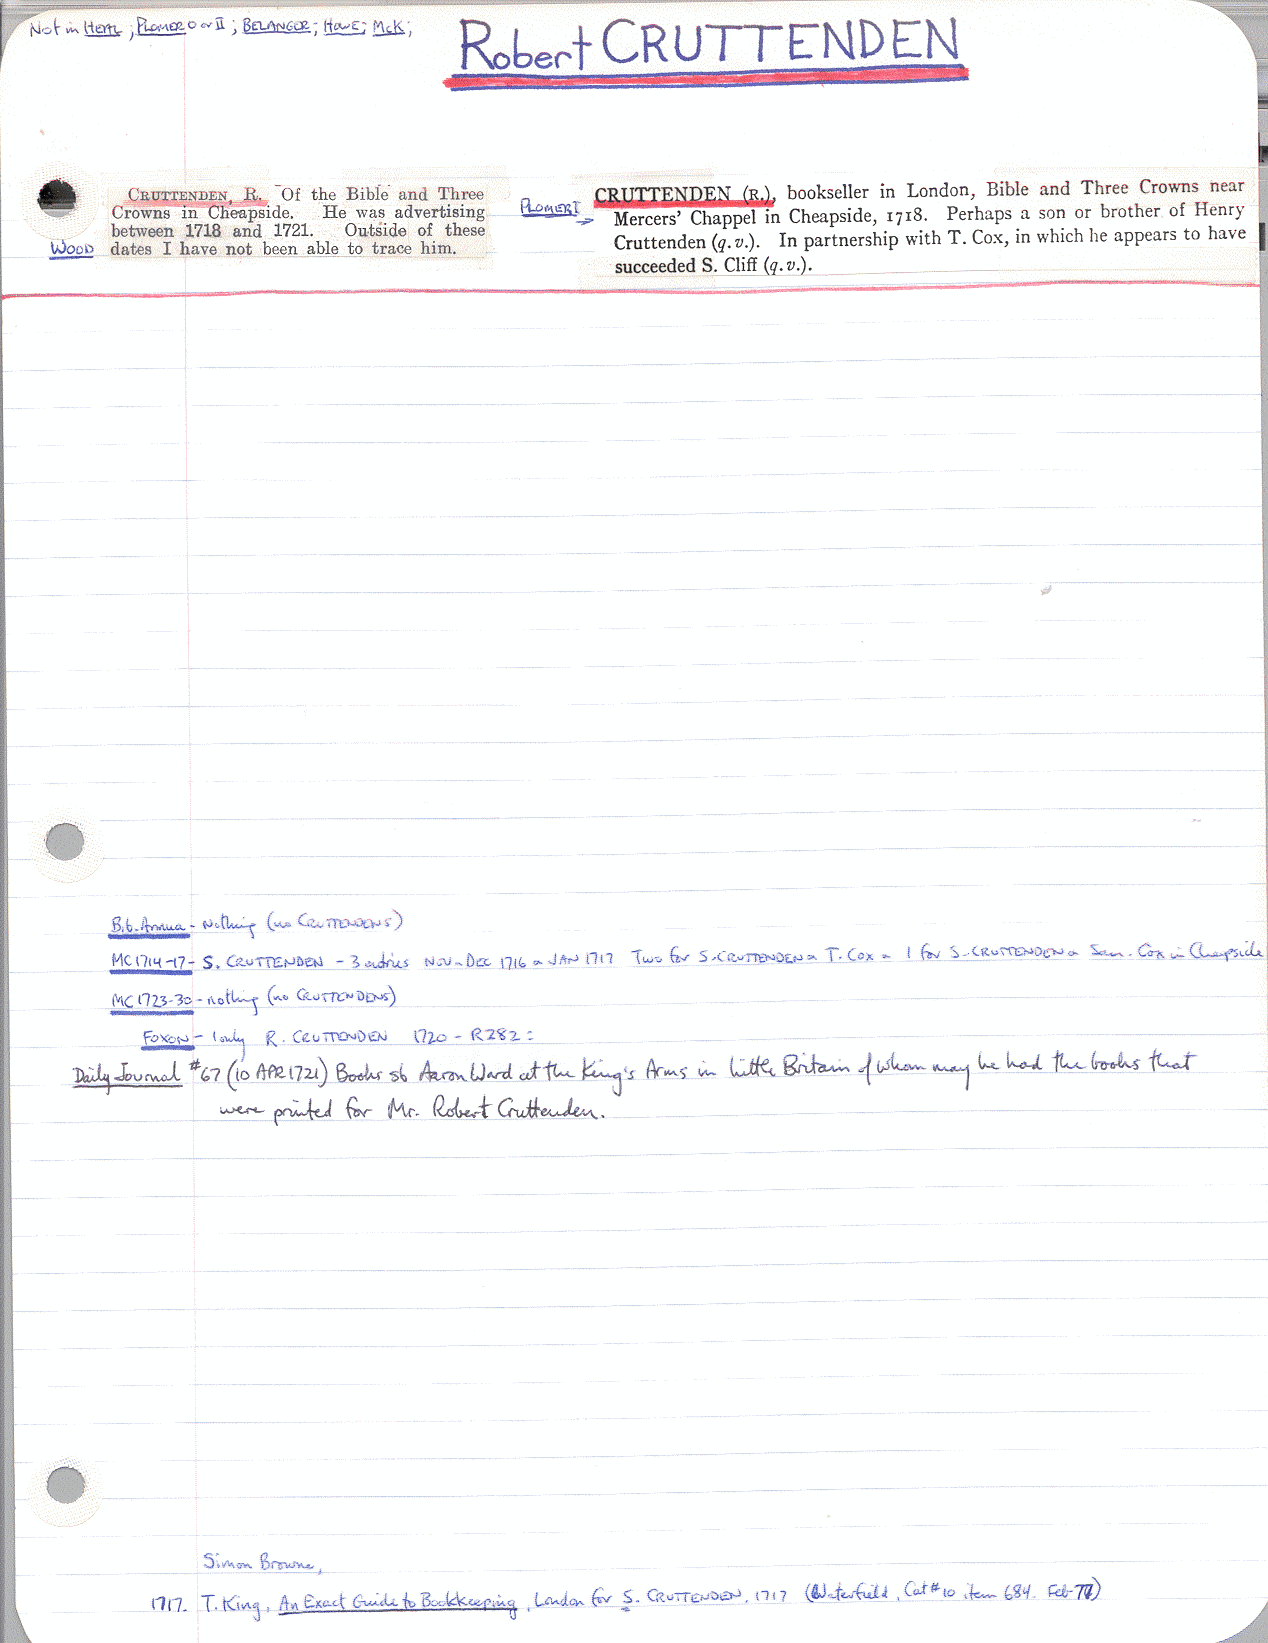 Not in HEAL; PLOMER O or II; BELANGER; HOWE; McK;
Robert CRUTTENDEN
CRUTTENDEN, R. Of the Bible and Three
Crowns in Cheapside. He was advertising
between 1718 and 1721. Outside of these
WOOD dates I have not been able to trace him.
PLOMER I
CRUTTENDEN (R.), bookseller in London, Bible and Three Crowns near
Mercers' Chappel in Cheapside, 1718. Perhaps a son or brother of Henry
Cruttenden (q.v.). In partnership with T. Cox, in which he appears to have
succeeded S. Cliff (q.v.).
Bib. Annua - Nothing (no CRUTTENDENS)
MC 1714-17 - S. CRUTTENDEN - 3 entries NOV - DEC 1716 & JAN 1717 Two for S. CRUTTENDEN & T. Cox & 1 for S. CRUTTENDEN & Sam. Cox in Cheapside
MC 1723-30 - nothing (no CRUTTENDENS)
FOXON - 1 only R. CRUTTENDEN 1720 - R282:
Daily Journal #67 (10 APR 1721) Books sb Aaron Ward at the King's Arms in Little Britain of whom may be had the books that
were printed for Mr. Robert Cruttenden.
Simon Browne,
1717. T. King, An Exact Guide to Bookkeeping, London for S. CRUTTENDEN, 1717 (Waterfield, Cat #10 item 684. Feb-77)